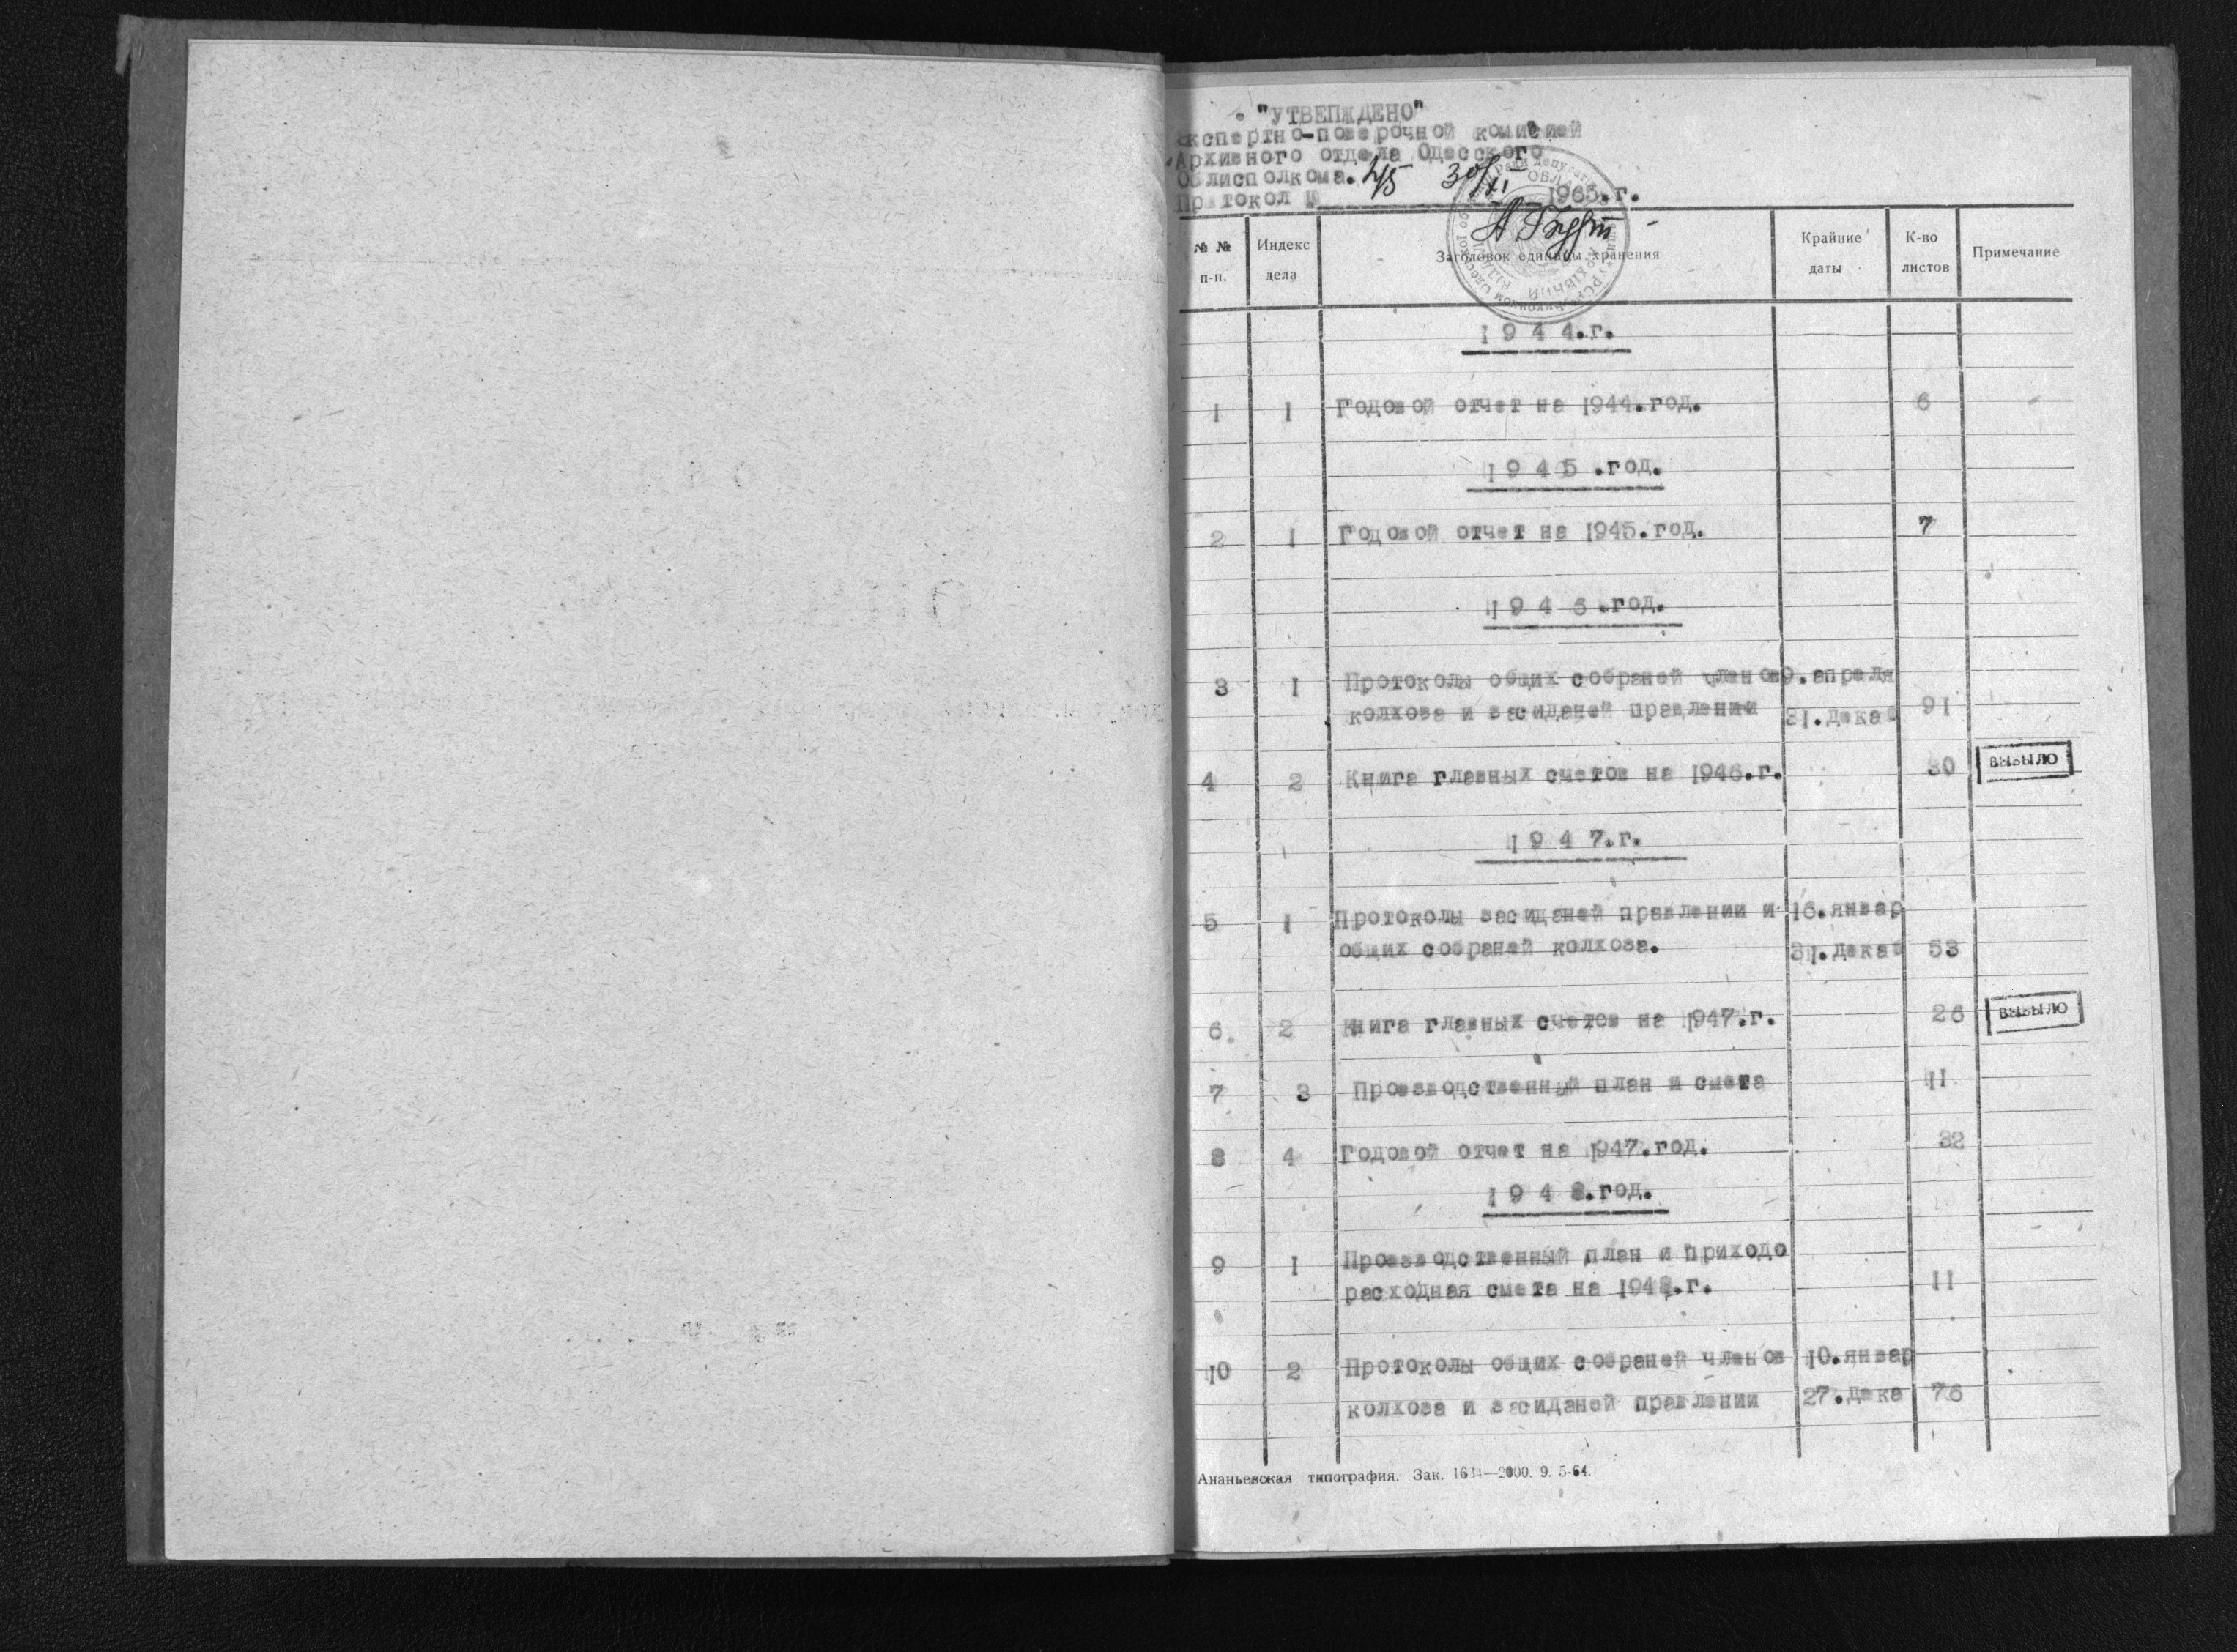 "УТВЕПЖДЕНО"
Экспертно-поверочной комисией
Архивного отдела Одесского
Облисполкома.
Пратокол № 45 30/XI 1965.г.
№ № п-п. Индекс дела Заголовок единицы хранения Крайние даты К-во листов Примечание
1 9 4 4.г.
1 1 Годовой отчет на 1944.год. 6
1 9 4 5 .год.
2 1 Годовой отчет на 1945.год. 7
1 9 4 6 .год.
3 1 Протоколы общих собраней членов 9.апреля
колхоза и засиданей правлении 31.декаб 91
4 2 Книга главных счетов на 1946.г. 30 ВЫБЫЛО
1 9 4 7.г.
5 1 Протоколы засиданей правлении и 16.январ
общих собраней колхоза. 31.декаб 53
6. 2 Книга главных счетов на 1947.г. 26 ВЫБЫЛО
7 3 Произведственный план и смета 11
8 4 Годовой отчет на 1947.год. 32
1 9 4 8.год.
9 1 Производственный план и приходо
расходная смета на 1948.г. 11
10 2 Протоколы общих собраней членов 10.январ
колхоза и засиданей правлении 27.дека 76
Ананьевская типография. Зак. 1634—2000. 9. 5-64.